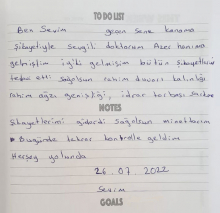 TO DO LIST
Ben Sevim geçen sene kanama
şikayetiyle Sevgili doktorum Azer hanıma
gelmiştim iyiki gelmişim bütün şikayetlerimi
tedavi etti Sağolsun rahim duvarı kalınlığı
rahim ağzı genişliği, idrar torbası sarkma
NOTES
Şikayetlerimi giderdi Sağolsun minnettarım
Bugünde tekrar kontrole geldim
Herşey yolunda
26.07.2022
Sevim
GOALS